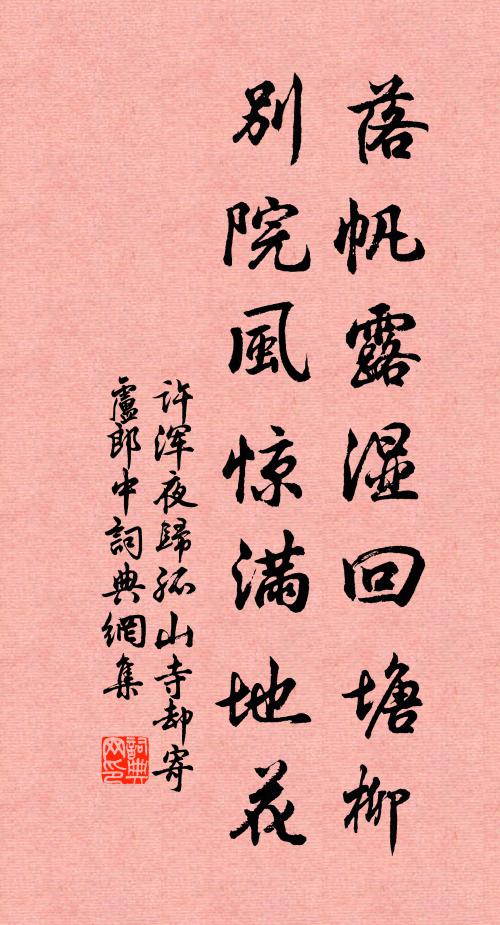 落帆露湿回塘柳
別院風惊满地花
许浑夜歸孤山寺却寄
盧郎中詞典網集
詞典网印